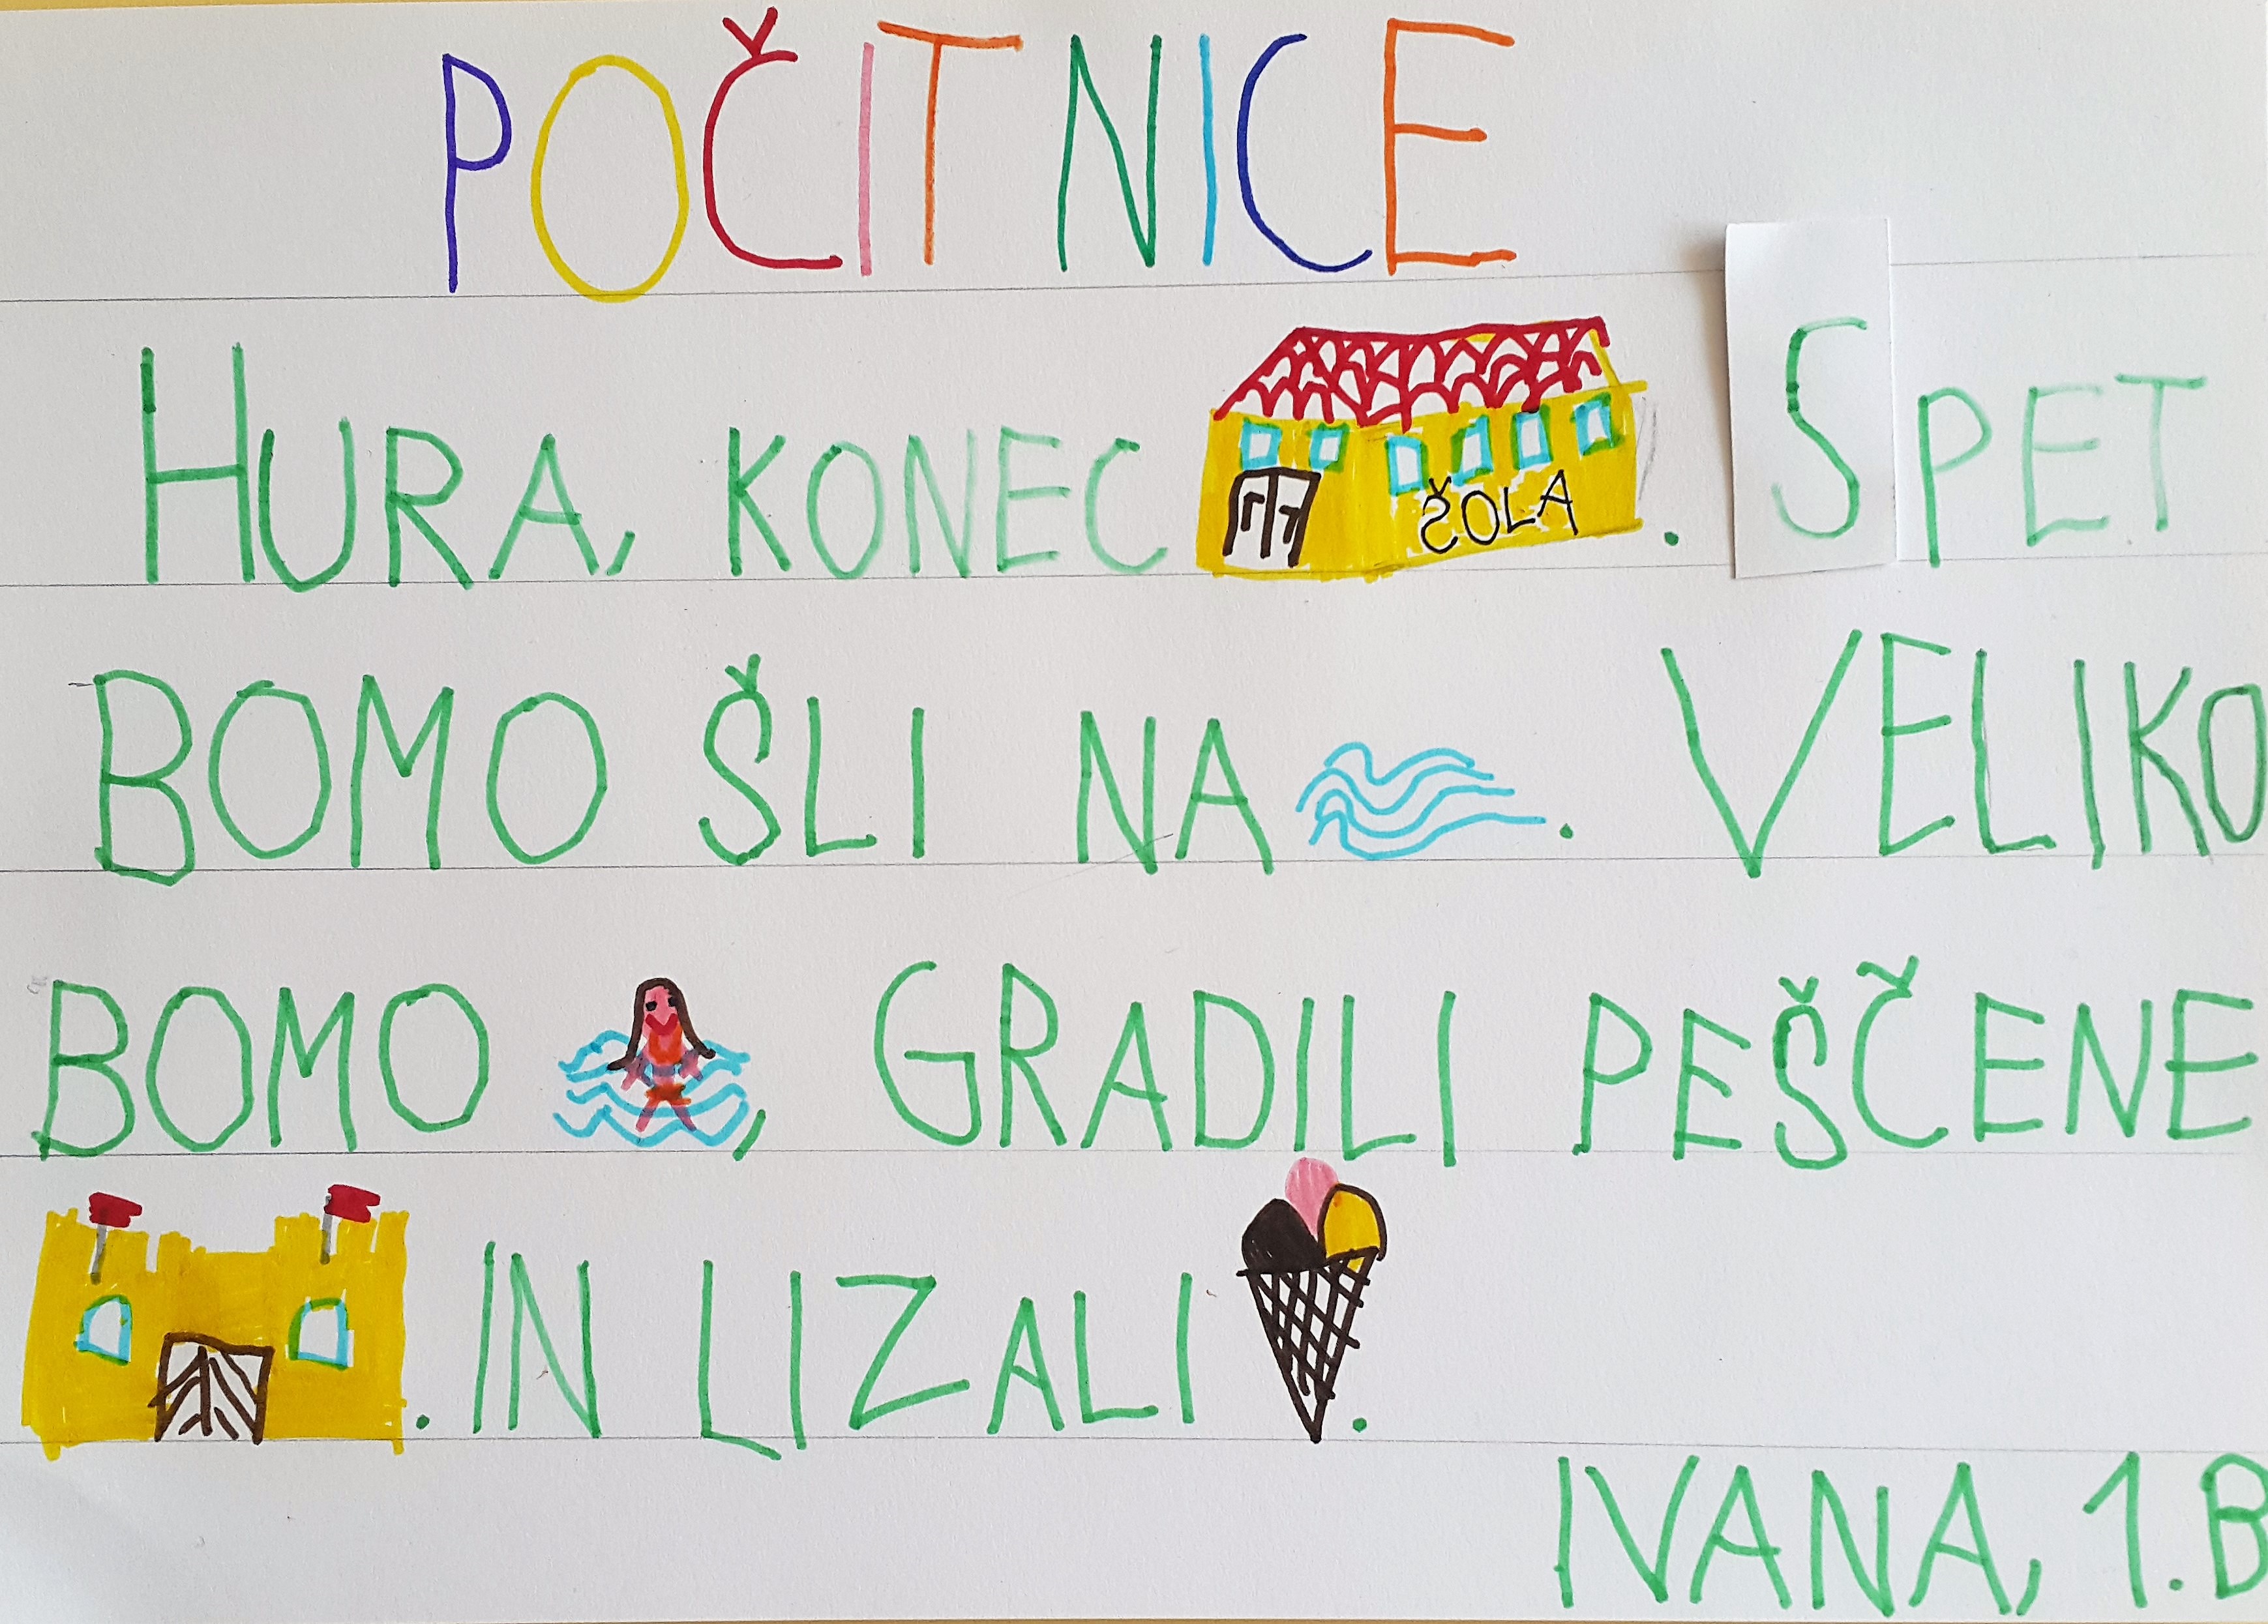 POČITNICE
HURA, KONEC ŠOLA. SPET
BOMO ŠLI NA . VELIKO
BOMO , GRADILI PEŠČENE
. IN LIZALI .
IVANA, 1.B